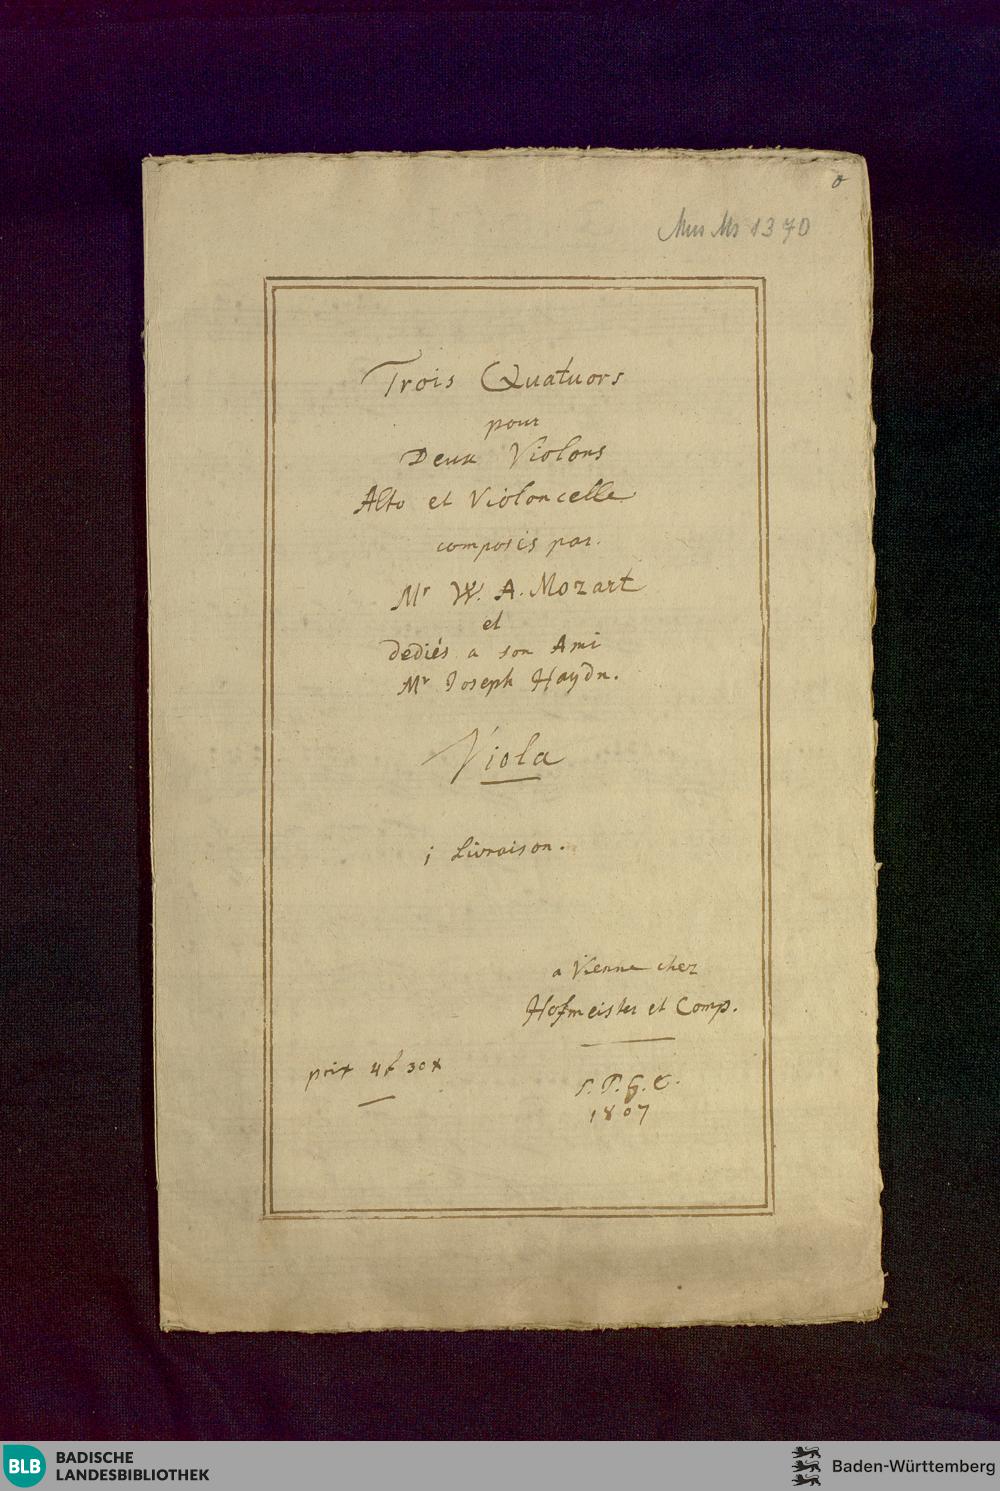 o
Mus Ms 1370
Trois Quatuors
pour
Deux Violons
Alto et Violoncelle
composés par.
Mr W. A. Mozart
et
dediés a son Ami
Mr Joseph Haydn.
Viola
1 Livraison.
a Vienne chez
Hofmeister et Comp.
prix 4f 30x
1807
BLB BADISCHE
LANDESBIBLIOTHEK
Baden-Württemberg